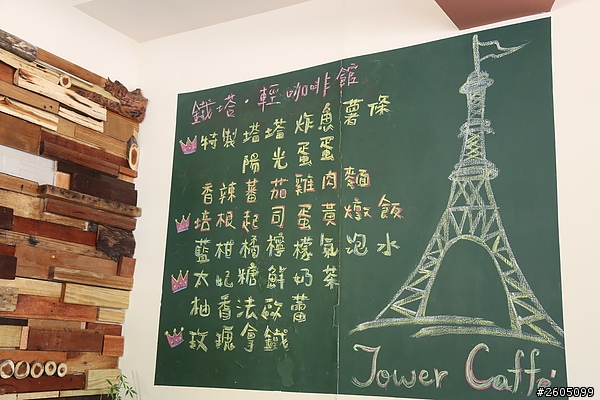 鐵塔·輕咖啡館
特製塔塔炸魚薯條
陽光蛋蛋
香辣蕃茄雞肉麵
培根起司蛋黃燉飯
藍柑橘檸檬氣泡水
太妃糖鮮奶茶
柚香法歐蕾
玫瑰拿鐵
Tower Caffé
#2605099